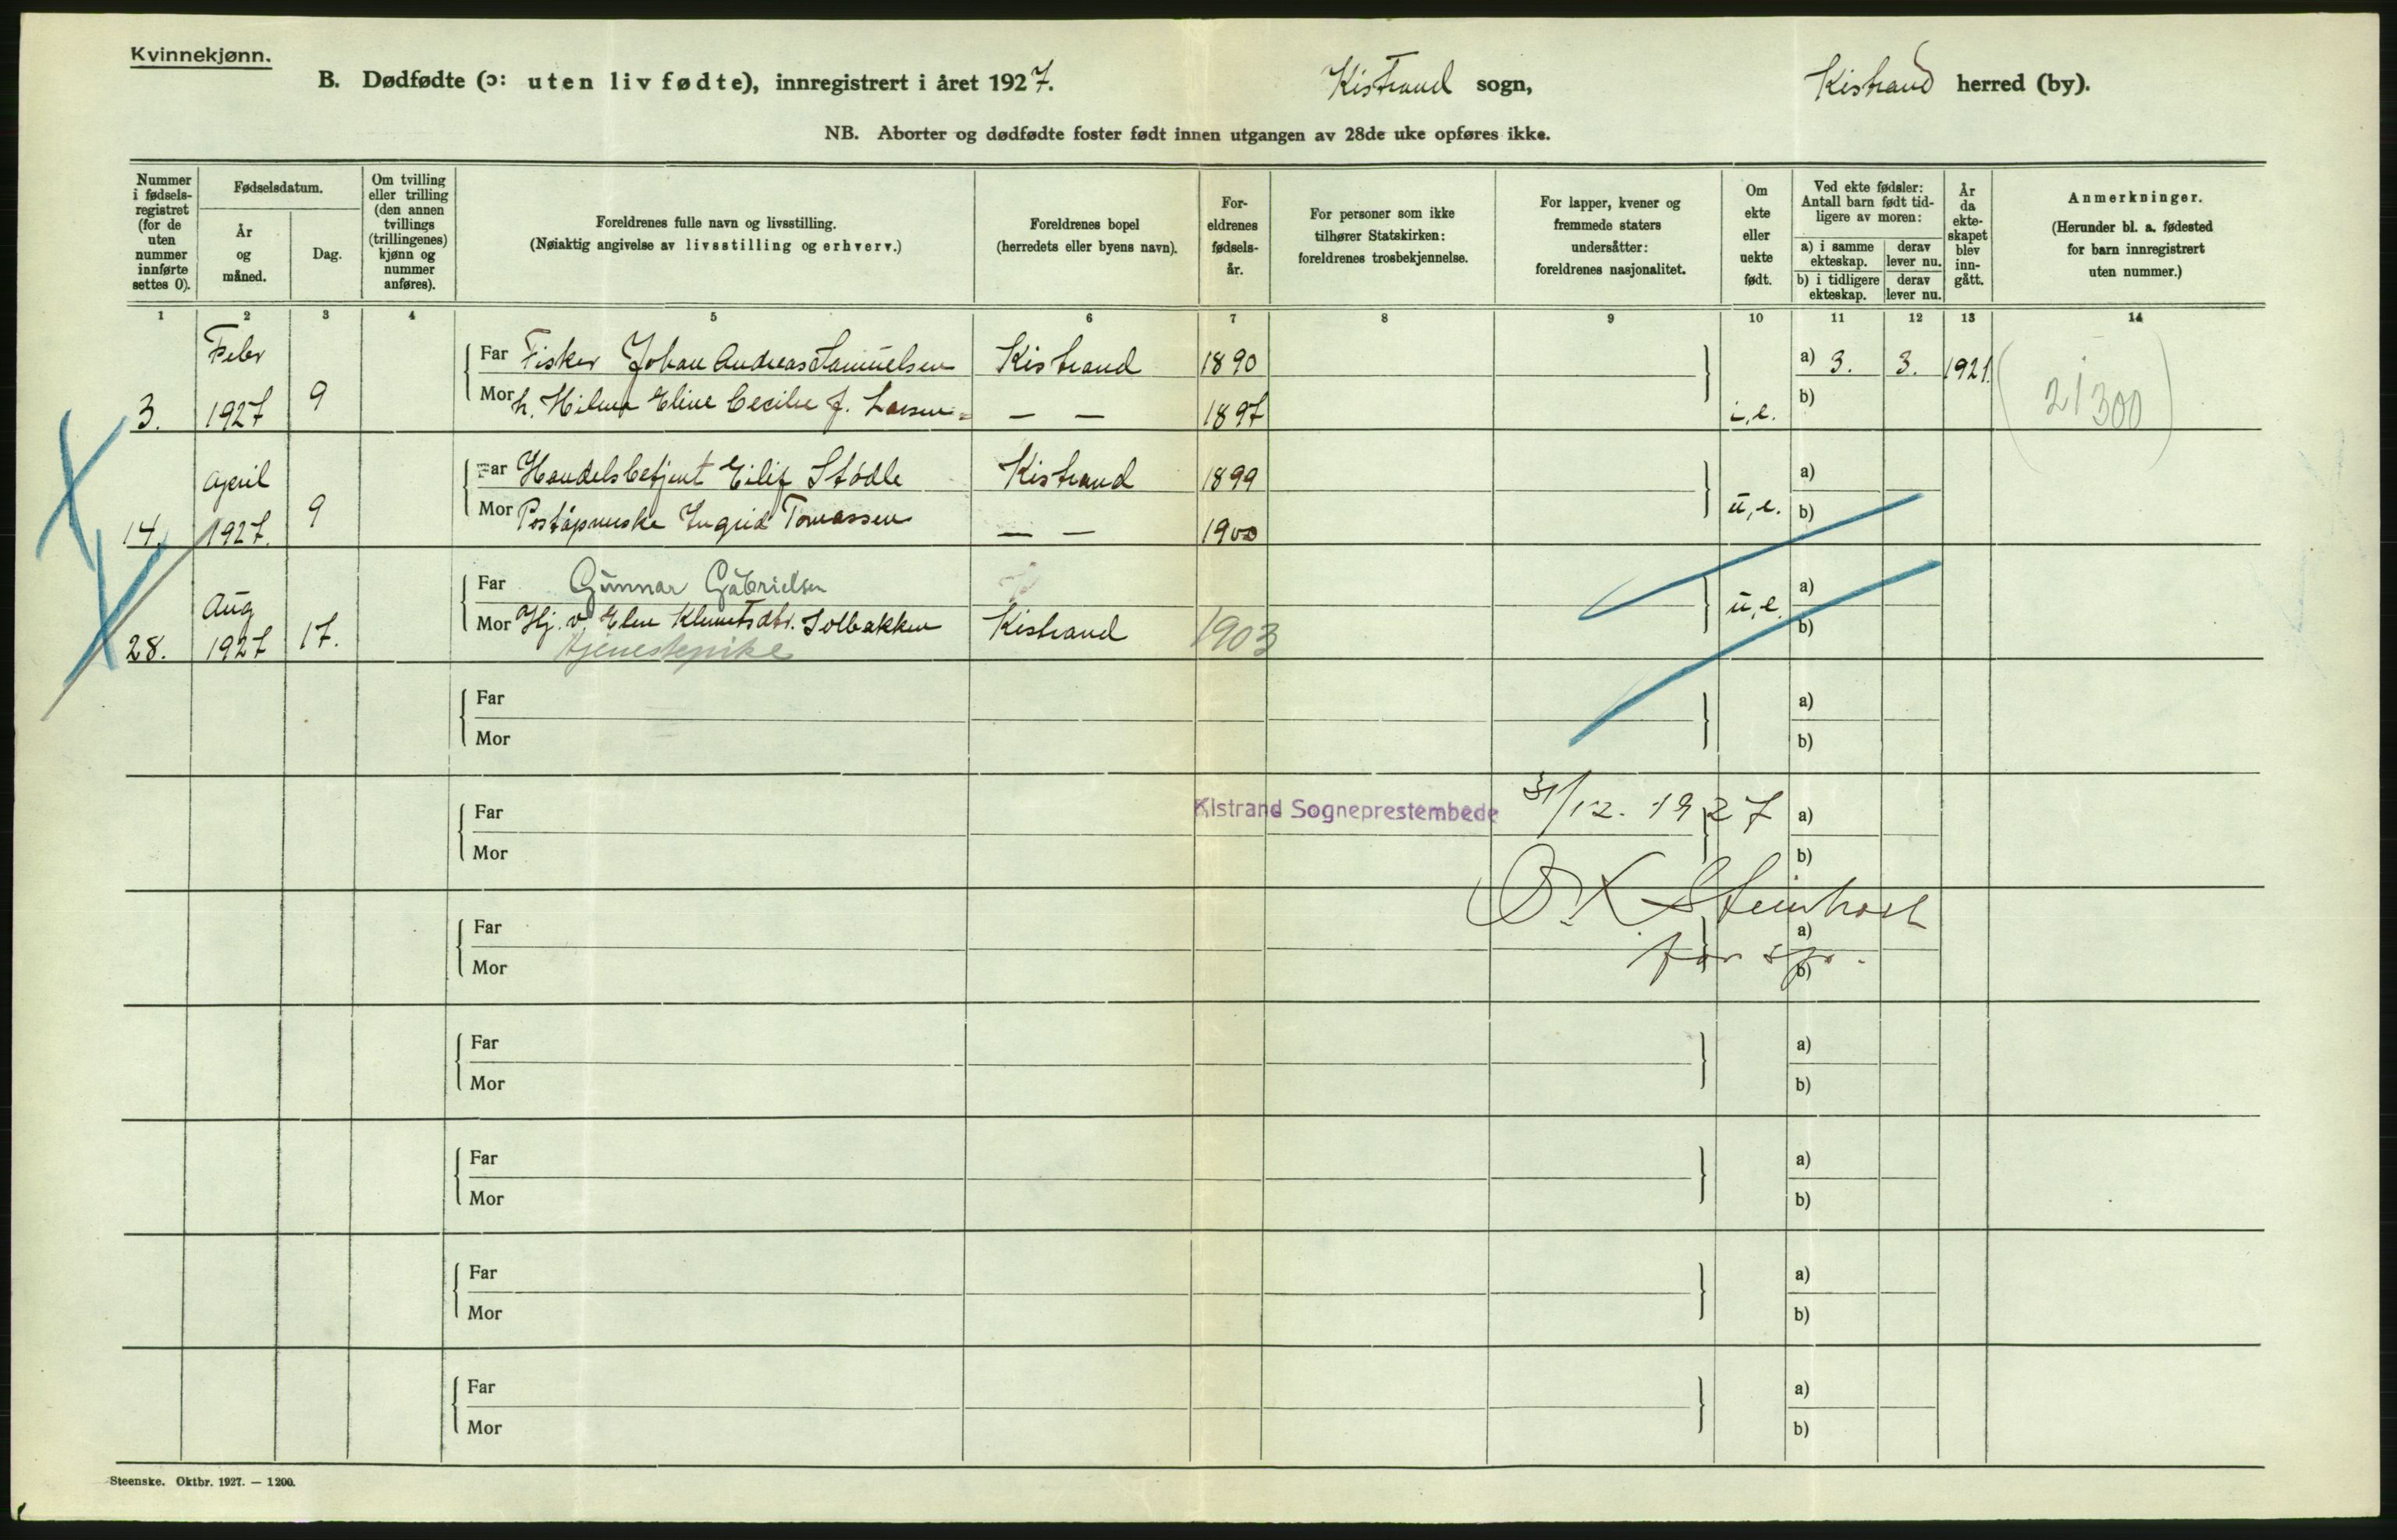 Kvinnekjønn.
B. Dødfødte (ɔ: uten liv fødte), innregistrert i året 1927.
Kistrand sogn,
Kistrand herred (by).
NB. Aborter og dødfødte foster født innen utgangen av 28de uke opføres ikke.
Nummer
i fødsels-
registret
(for de
uten
nummer
innførte
settes 0).
Fødselsdatum.
År
og
måned.
Dag.
Om tvilling
eller trilling
(den annen
tvillings
(trillingenes)
kjønn og
nummer
anføres).
Foreldrenes fulle navn og livsstilling.
(Nøiaktig angivelse av livsstilling og erhverv.)
Foreldrenes bopel
(herredets eller byens navn).
For-
eldrenes
fødsels-
år.
For personer som ikke
tilhører Statskirken:
foreldrenes trosbekjennelse.
For lapper, kvener og
fremmede staters
undersåtter:
foreldrenes nasjonalitet.
Om
ekte
eller
uekte
født.
Ved ekte fødsler:
Antall barn født tid-
ligere av moren:
a) i samme
ekteskap.
derav
lever nu.
b) i tidligere
ekteskap.
derav
lever nu.
År
da
ekte-
skapet
blev
inn-
gått.
Anmerkninger.
(Herunder bl. a. fødested
for barn innregistrert
uten nummer.)
1 2 3 4 5 6 7 8 9 10 11 12 13 14
Febr
Far Fisker Johan Andreas Samuelsen Kistrand 1890 a) 3. 3. 1921
3. 1927 9 Mor h. Hilma Eline Cecilie f. Larsen — — 1897 i, e. b)
(21300)
April
Far Handelsbetjent Eilif Stødle Kistrand 1899 a)
14. 1927. 9 Mor Poståpnerske Ingrid Tomassen — — 1900 u, e. b)
Far Gunnar Gabrielsen a)
Aug
28. 1927 17. Mor Hj. v. Elen Klemetsdtr. Solbakken Kistrand 1903 u, e. b)
tjenestepike
Far a)
Mor b)
Kistrand Sogneprestembede 31/12. 1927
Far a)
Mor b)
O. K. Steinholt
Far a)
for spr.
Mor b)
Far a)
Mor b)
Far a)
Mor b)
Far a)
Mor b)
Far a)
Mor b)
Steenske. Oktbr. 1927. — 1200.